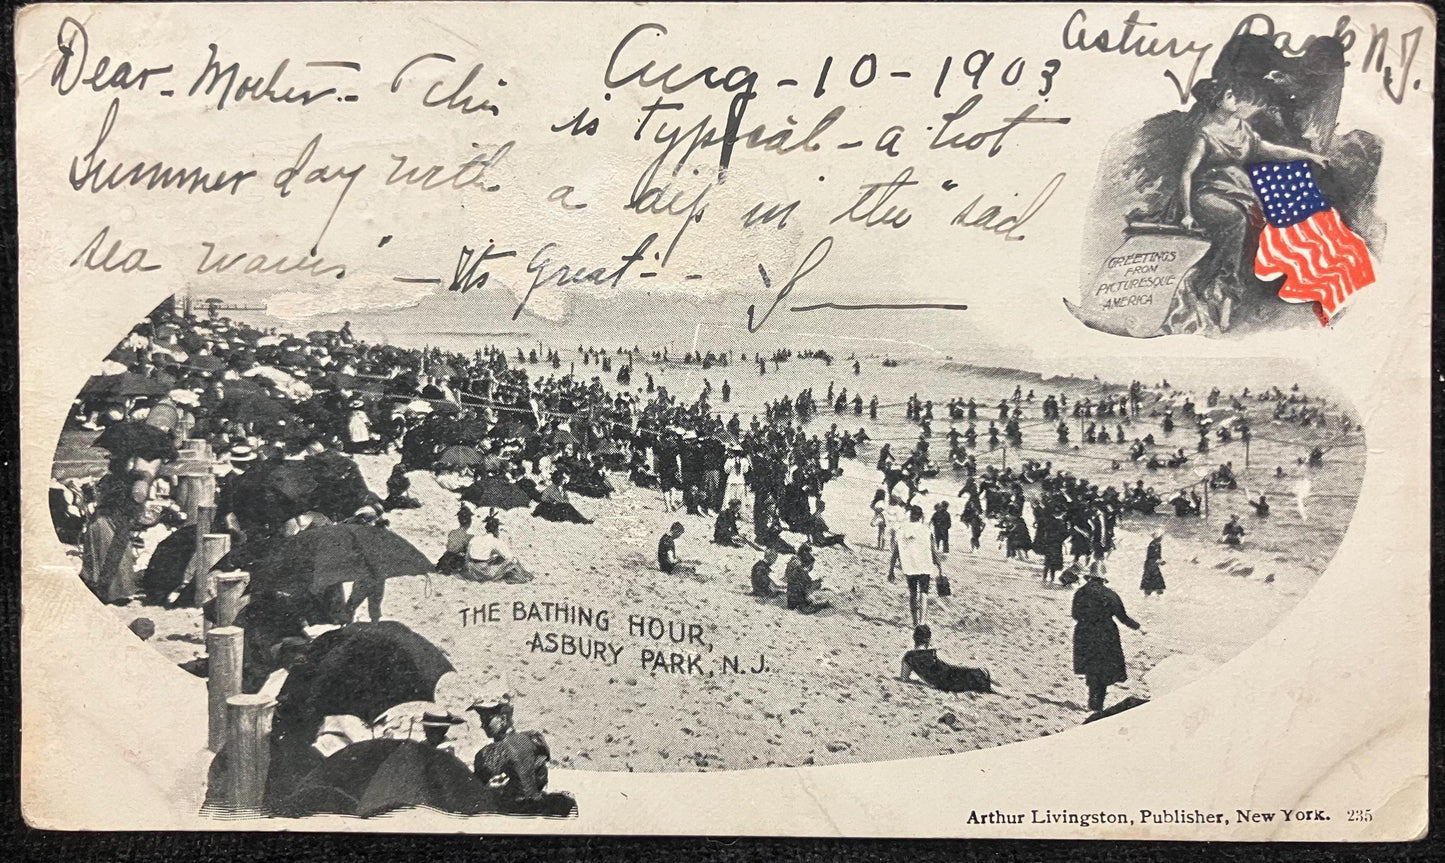 Asbury Park N.J.
Aug - 10 - 1903
Dear - Mother - This
is typical - a hot
Summer day with a dip in the "sad
sea waves" - Its Great - -
J
GREETINGS
FROM
PICTURESQUE
AMERICA
THE BATHING HOUR,
ASBURY PARK, N.J.
Arthur Livingston, Publisher, New York. 235